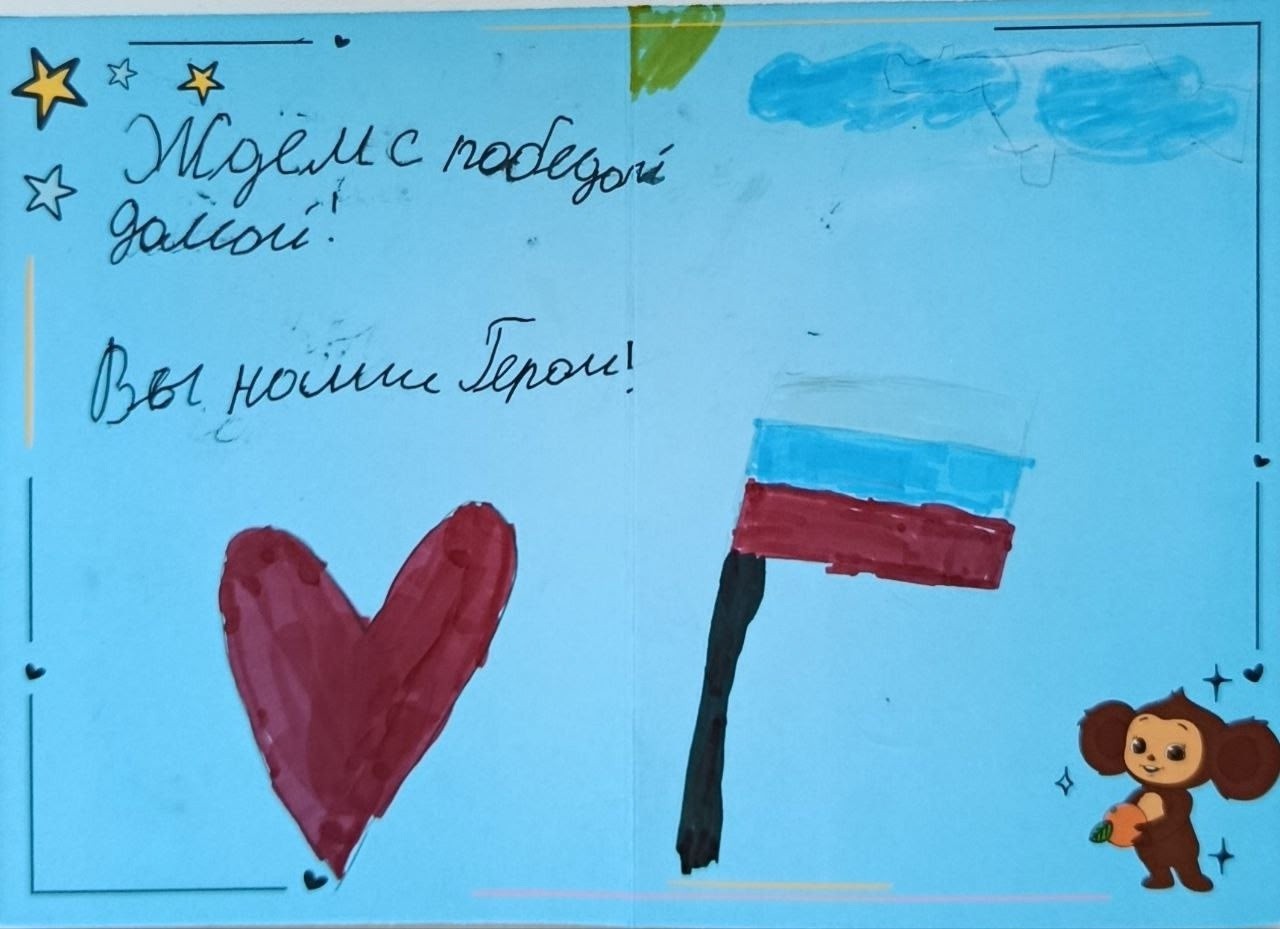 Ждём с победой
домой!
Вы наши Герои!